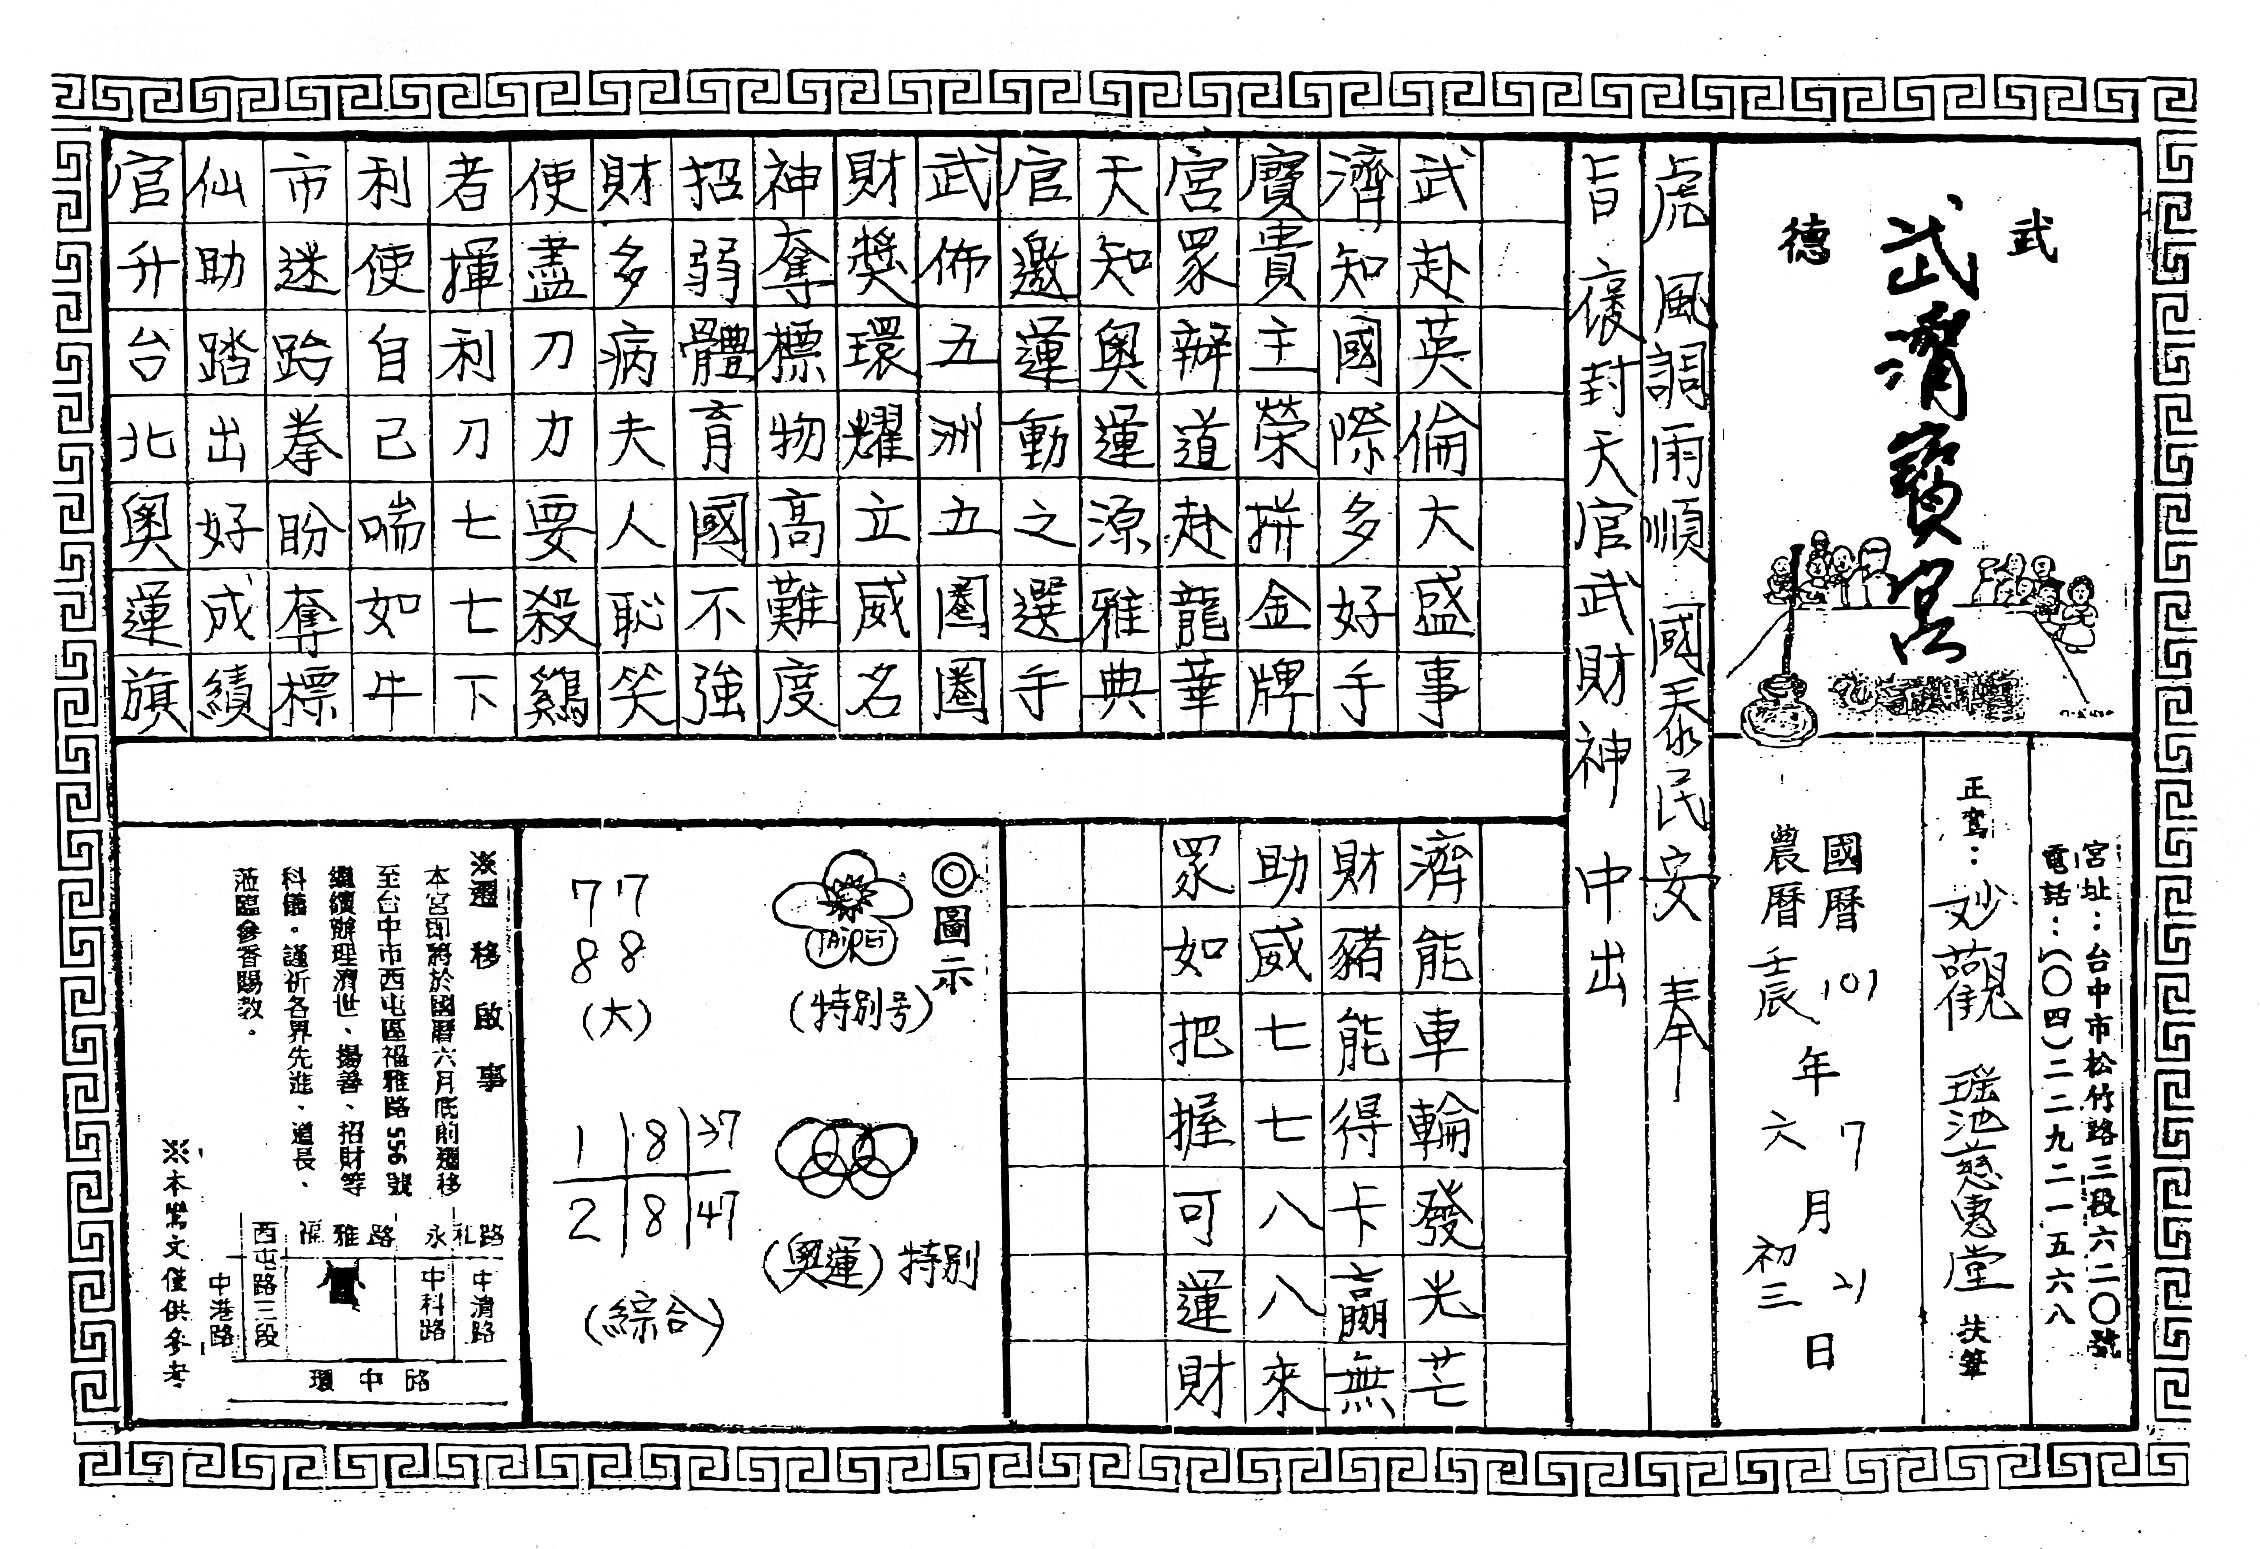 武德
武濟寶宮
宮址：台中市松竹路三段六二〇號
電話：（〇四）二二九二一五六八
正鸞：妙觀 瑤池慈惠堂 扶筆
國曆101年7月21日
農曆壬辰年六月初三日
虎 風調雨順 國泰民安 奉
旨 褒封天官武財神 中出
武赴英倫大盛事
濟知國際多好手
寶貴主榮拼金牌
宮眾辦道赴龍華
天知奧運源雅典
官邀運動之選手
武佈五洲五圈圈
財獎環耀立威名
神奪標物高難度
招弱體育國不強
財多病夫人恥笑
使盡刀力要殺鷄
者揮利刀七七下
利使自己喘如牛
市迷跆拳盼奪標
仙助踏出好成績
官升台北奧運旗
濟能車輪發光芒
財豬能得卡贏無
助威七七八八來
眾如把握可運財
◎圖示
TAIPEI
(特別号)
77
88
(大)
(奧運)特別
1 8 37
2 8 47
(綜合)
※遷移啟事
本宮即將於國曆六月底前遷移
至台中市西屯區福雅路556號
繼續辦理濟世、揚善、招財等
科儀。謹祈各界先進、道長、
蒞臨參香賜教。
永福路
福雅路
中清路
中科路
西屯路三段
中港路
環中路
※本鸞文僅供參考